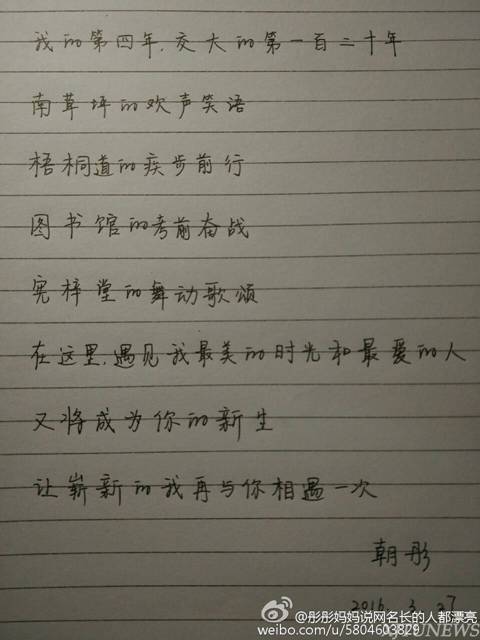 我的第四年,交大的第一百二十年
南草坪的欢声笑语
梧桐道的疾步前行
图书馆的考前奋战
宪梓堂的舞动歌颂
在这里,遇见我最美的时光和最爱的人
又将成为你的新生
让崭新的我再与你相遇一次
朝彤
2016. 3. 27
@彤彤妈妈说网名长的人都漂亮
weibo.com/u/5804603829
NEWS